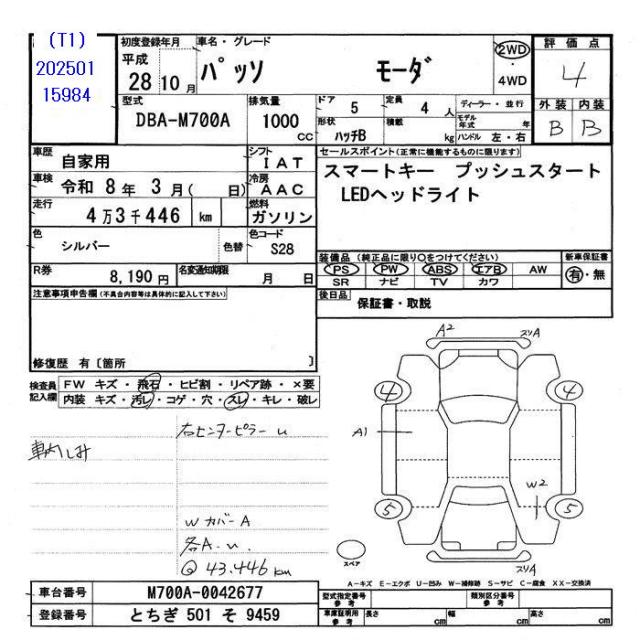 (T1)
202501
15984
初度登録年月
平成
28 10 月
車名・グレード
パッソ モーダ
2WD
4WD
評価点
4
外装 内装
B B
型式
DBA-M700A
排気量
1000 CC
ドア 5
定員 4 人
形状 ハッチB
積載 kg
ディーラー・並行
モデル年式 年
ハンドル 左・右
車歴 自家用
シフト IAT
車検 令和 8 年 3 月 ( 日)
冷房 AAC
走行 4万3千446 km
燃料 ガソリン
色 シルバー 色替
色コード S28
R券 8,190 円
名変通知期限 月 日
セールスポイント(正常に機能するものに限ります)
スマートキー プッシュスタート
LEDヘッドライト
装備品 (純正品に限り○をつけてください)
新車保証書
PS PW ABS エアB AW
有・無
SR ナビ TV カワ
後日品
保証書・取説
注意事項申告欄(不具合内容等は具体的に記入して下さい)
修復歴 有〔箇所 〕
検査員記入欄
FW キズ・飛石・ヒビ割・リペア跡・×要
内装 キズ・汚レ・コゲ・穴・スレ・キレ・破レ
右センターピラー u
車内しみ
W カバーA
各A.u.
@ 43.446 km
A2
スリA
4
4
A1
W2
5
5
スペア
スリA
A-キズ E-エクボ U-凹み W-補修跡 S-サビ C-腐食 XX-交換済
車台番号 M700A-0042677
登録番号 とちぎ 501 そ 9459
型式指定番号
参考
類別区分番号
参考
車庫証明用
参考
長さ cm
幅 cm
高さ cm